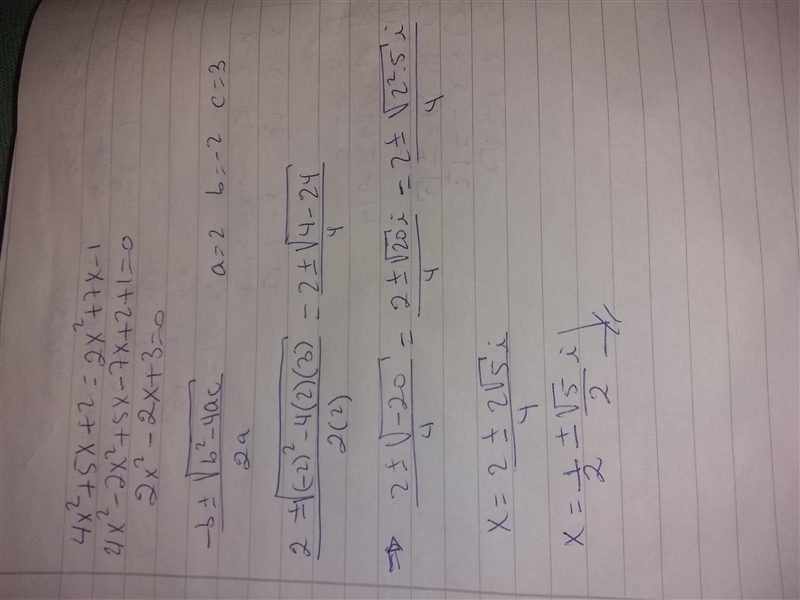 4x²+5x+2 = 2x²+7x-1
4x²-2x²+5x-7x+2+1=0
2x²-2x+3=0
-b±√(b²-4ac) / 2a    a=2  b=-2  c=3
2 ±√((-2)²-4(2)(3)) / 2(2) = 2±√(4-24) / 4
⇒ 2±√(-20) / 4 = 2±√20 i / 4 = 2±√(2²·5) i / 4
x = 2 ± 2√5 i / 4
x = 1/2 ± √5/2 i